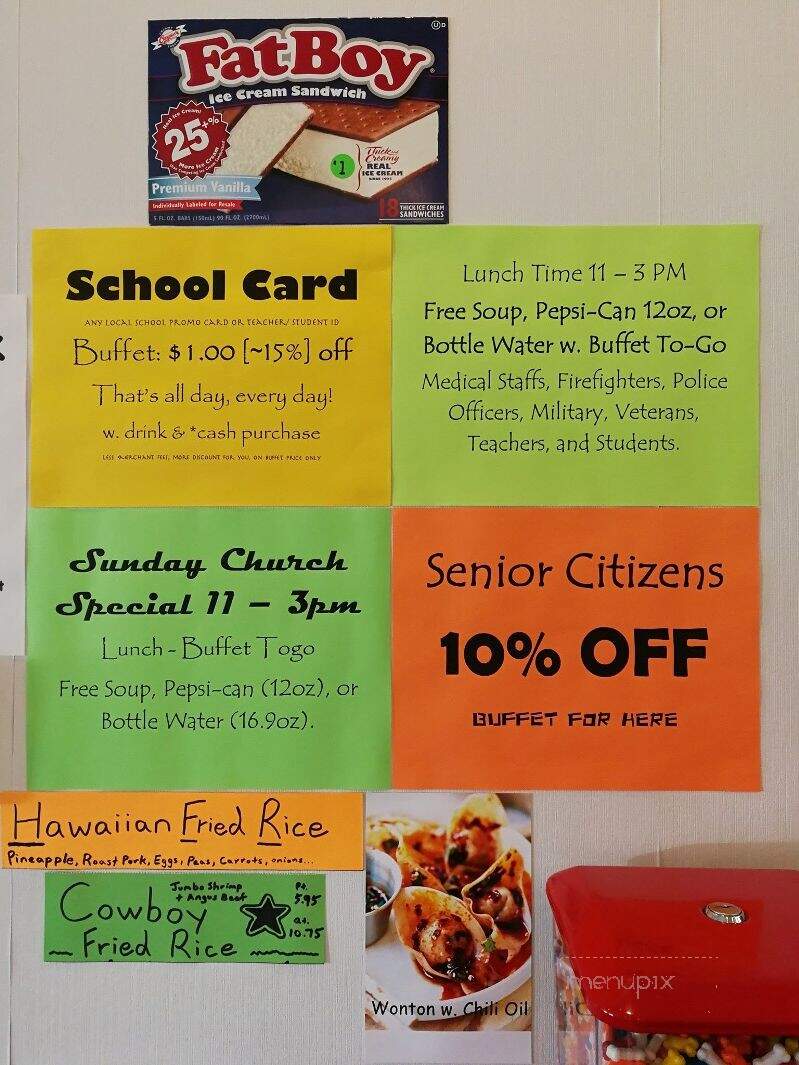 FatBoy®
Ice Cream Sandwich
Real Ice Cream!
25+%
More Ice Cream
$1
Thick and
Creamy
REAL
ICE CREAM
SINCE 1925
Premium Vanilla
Individually Labeled for Resale
5 FL OZ. BARS (150mL) 90 FL OZ. (2700mL)
18 THICK ICE CREAM
SANDWICHES
School Card
ANY LOCAL SCHOOL PROMO CARD OR TEACHER/ STUDENT ID
Buffet: $1.00 [~15%] off
That's all day, every day!
w. drink & *cash purchase
LESS MERCHANT FEES, MORE DISCOUNT FOR YOU, ON BUFFET PRICE ONLY
Lunch Time 11 – 3 PM
Free Soup, Pepsi-Can 12oz, or
Bottle Water w. Buffet To-Go
Medical Staffs, Firefighters, Police
Officers, Military, Veterans,
Teachers, and Students.
Sunday Church
Special 11 – 3pm
Lunch - Buffet Togo
Free Soup, Pepsi-can (12oz), or
Bottle Water (16.9oz).
Senior Citizens
10% OFF
BUFFET FOR HERE
Hawaiian Fried Rice
Pineapple, Roast Pork, Eggs, Peas, Carrots, onions...
Jumbo Shrimp
+ Angus Beef
Cowboy
Fried Rice
Pt.
5.95
Qt.
10.75
Wonton w. Chili Oil
menupix